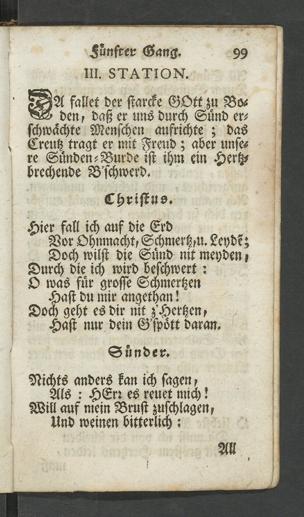 Fünfter Gang. 99
III. STATION.
DA fallet der starcke GOtt zu Bo-
den, daß er uns durch Sünd er-
schwächte Menschen aufrichte ; das
Creutz tragt er mit Freud ; aber unse-
re Sünden-Burde ist ihm ein Hertz-
brechende B'schwerd.
Christus.
Hier fall ich auf die Erd
Vor Ohnmacht, Schmertz, u. Leydẽ;
Doch wilst die Sünd nit meyden,
Durch die ich wird beschwert :
O was für grosse Schmertzen
Hast du mir angethan !
Doch geht es dir nit z'Hertzen,
Hast nur dein G'spött daran.
Sünder.
Nichts anders kan ich sagen,
Als : HErr es reuet mich !
Will auf mein Brust zuschlagen,
Und weinen bitterlich :
All